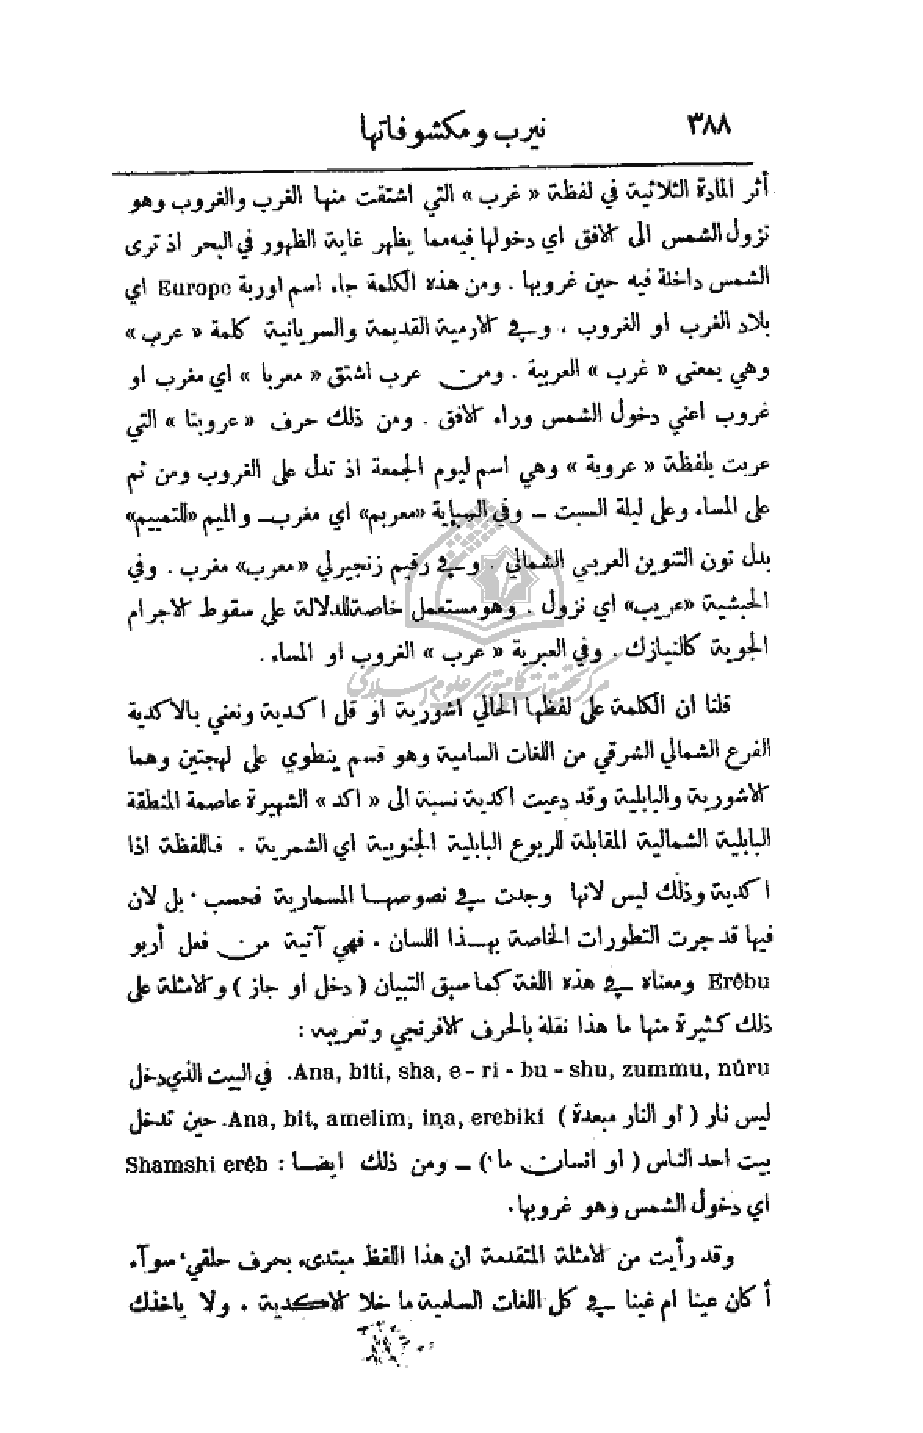 ٣٨٨
نيرب ومكشوفاتها
أثر المادة الثلاثية في لفظة « غرب » التي اشتقت منها الغرب والغروب وهو
نزول الشمس الى الافق اي دخولها فيه مما يظهر غاية الظهور في البحر اذ ترى
الشمس داخلة فيه حين غروبها . ومن هذه الكلمة جاء اسم اوربة Europe اي
بلاد الغرب او الغروب . وفي الارمية القديمة والسريانية كلمة « عرب »
وهي بمعنى « غرب » العربية . ومن عرب اشتق « معربا » اي مغرب او
غروب اعني دخول الشمس وراء الافق . ومن ذلك حرف « عروبتا » التي
عربت بلفظة « عروبة » وهي اسم ليوم الجمعة اذ تدل على الغروب ومن ثم
على المساء وعلى ليلة السبت — وفي السباية «معربم» اي مغرب — والميم «للتمييم»
بدل نون التنوين العربي الشمالي . وفي رقيم زنجيرلي «معرب» مغرب . وفي
الحبشية «عريب» اي نزول . وهو مستعمل خاصة للدلالة على سقوط الاجرام
الجوية كالنيازك . وفي العبرية « عرب » الغروب او المساء .
قلنا ان الكلمة على لفظها الحالي اشورية او قل اكدية ونعني بالاكدية
الفرع الشمالي الشرقي من اللغات السامية وهو قسم ينطوي على لهجتين وهما
الاشورية والبابلية وقد دعيت اكدية نسبة الى « اكد » الشهيرة عاصمة المنطقة
البابلية الشمالية المقابلة للربوع البابلية الجنوبية اي الشمرية . فاللفظة اذا
اكدية وذلك ليس لانها وجدت في نصوصها المسمارية فحسب ، بل لان
فيها قد جرت التطورات الخاصة بهذا اللسان . فهي آتية من فعل أربو
Erêbu ومعناه في هذه اللغة كما سبق التبيان ( دخل او جاز ) والامثلة على
ذلك كثيرة منها ما هذا نقله بالحرف الافرنجي وتعريبه :
Ana, biti, sha, e - ri - bu - shu, zummu, nûru. في البيت الذي دخل
ليس نار ( او النار مبعدة ) Ana, bit, amelim, ina, erebiki. حين تدخل
بيت احد الناس ( او انسان ما ) — ومن ذلك ايضا : Shamshi erêb
اي دخول الشمس وهو غروبها .
وقد رأيت من الامثلة المتقدمة ان هذا اللفظ مبتدىء بحرف حلقي سوآء
أ كان عينا ام غينا في كل اللغات السامية ما خلا الاكدية . ولا ياخذك
مركز تحقيقات كامپيوترى علوم اسلامى